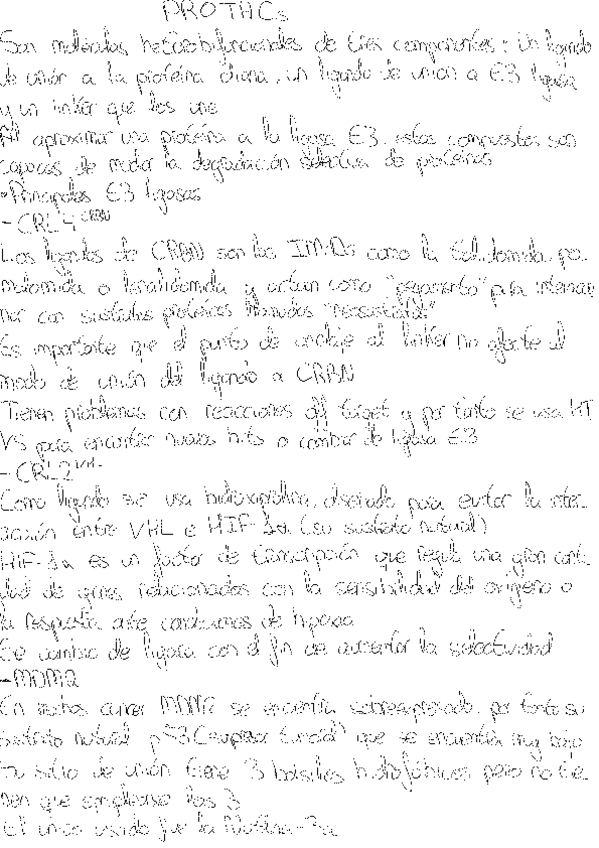 PROTACs
Son moléculas heterobifuncionales de tres componentes: Un ligando
de unión a la proteína diana, un ligando de unión a E3 ligasa
y un linker que los une
Al aproximar una proteína a la ligasa E3, estos compuestos son
capaces de mediar la degradación selectiva de proteínas
Principales E3 ligasas
- CRL4 CRBN
Los ligandos de CRBN son los IMiDs como la talidomida, po-
malidomida o lenalidomida y actúan como "pegamento" para interaccio-
nar con sustratos proteicos llamados "neosustratos"
Es importante que el punto de anclaje al linker no afecte al
modo de unión del ligando a CRBN
Tienen problemas con reacciones off target y por tanto se usa HT
VS para encontrar nuevos hits o cambiar de ligasa E3
- CRL2 VHL
Como ligando se usa hidroxiprolina, diseñado para evitar la inter-
acción entre VHL e HIF-1α (su sustrato natural)
HIF-1α es un factor de transcripción que regula una gran canti-
dad de genes relacionados con la sensibilidad del oxígeno o
la respuesta ante condiciones de hipoxia
Se cambia de ligasa con el fin de aumentar la selectividad
- MDM2
En muchos cáncer MDM2 se encuentra sobreexpresado, por tanto su
sustrato natural p53 (supresor tumoral) que se encuentra muy bajo
Su sitio de unión tiene 3 bolsillos hidrofóbicos pero no tie-
nen que emplearse los 3
El único usado fue la Nutlina-3a